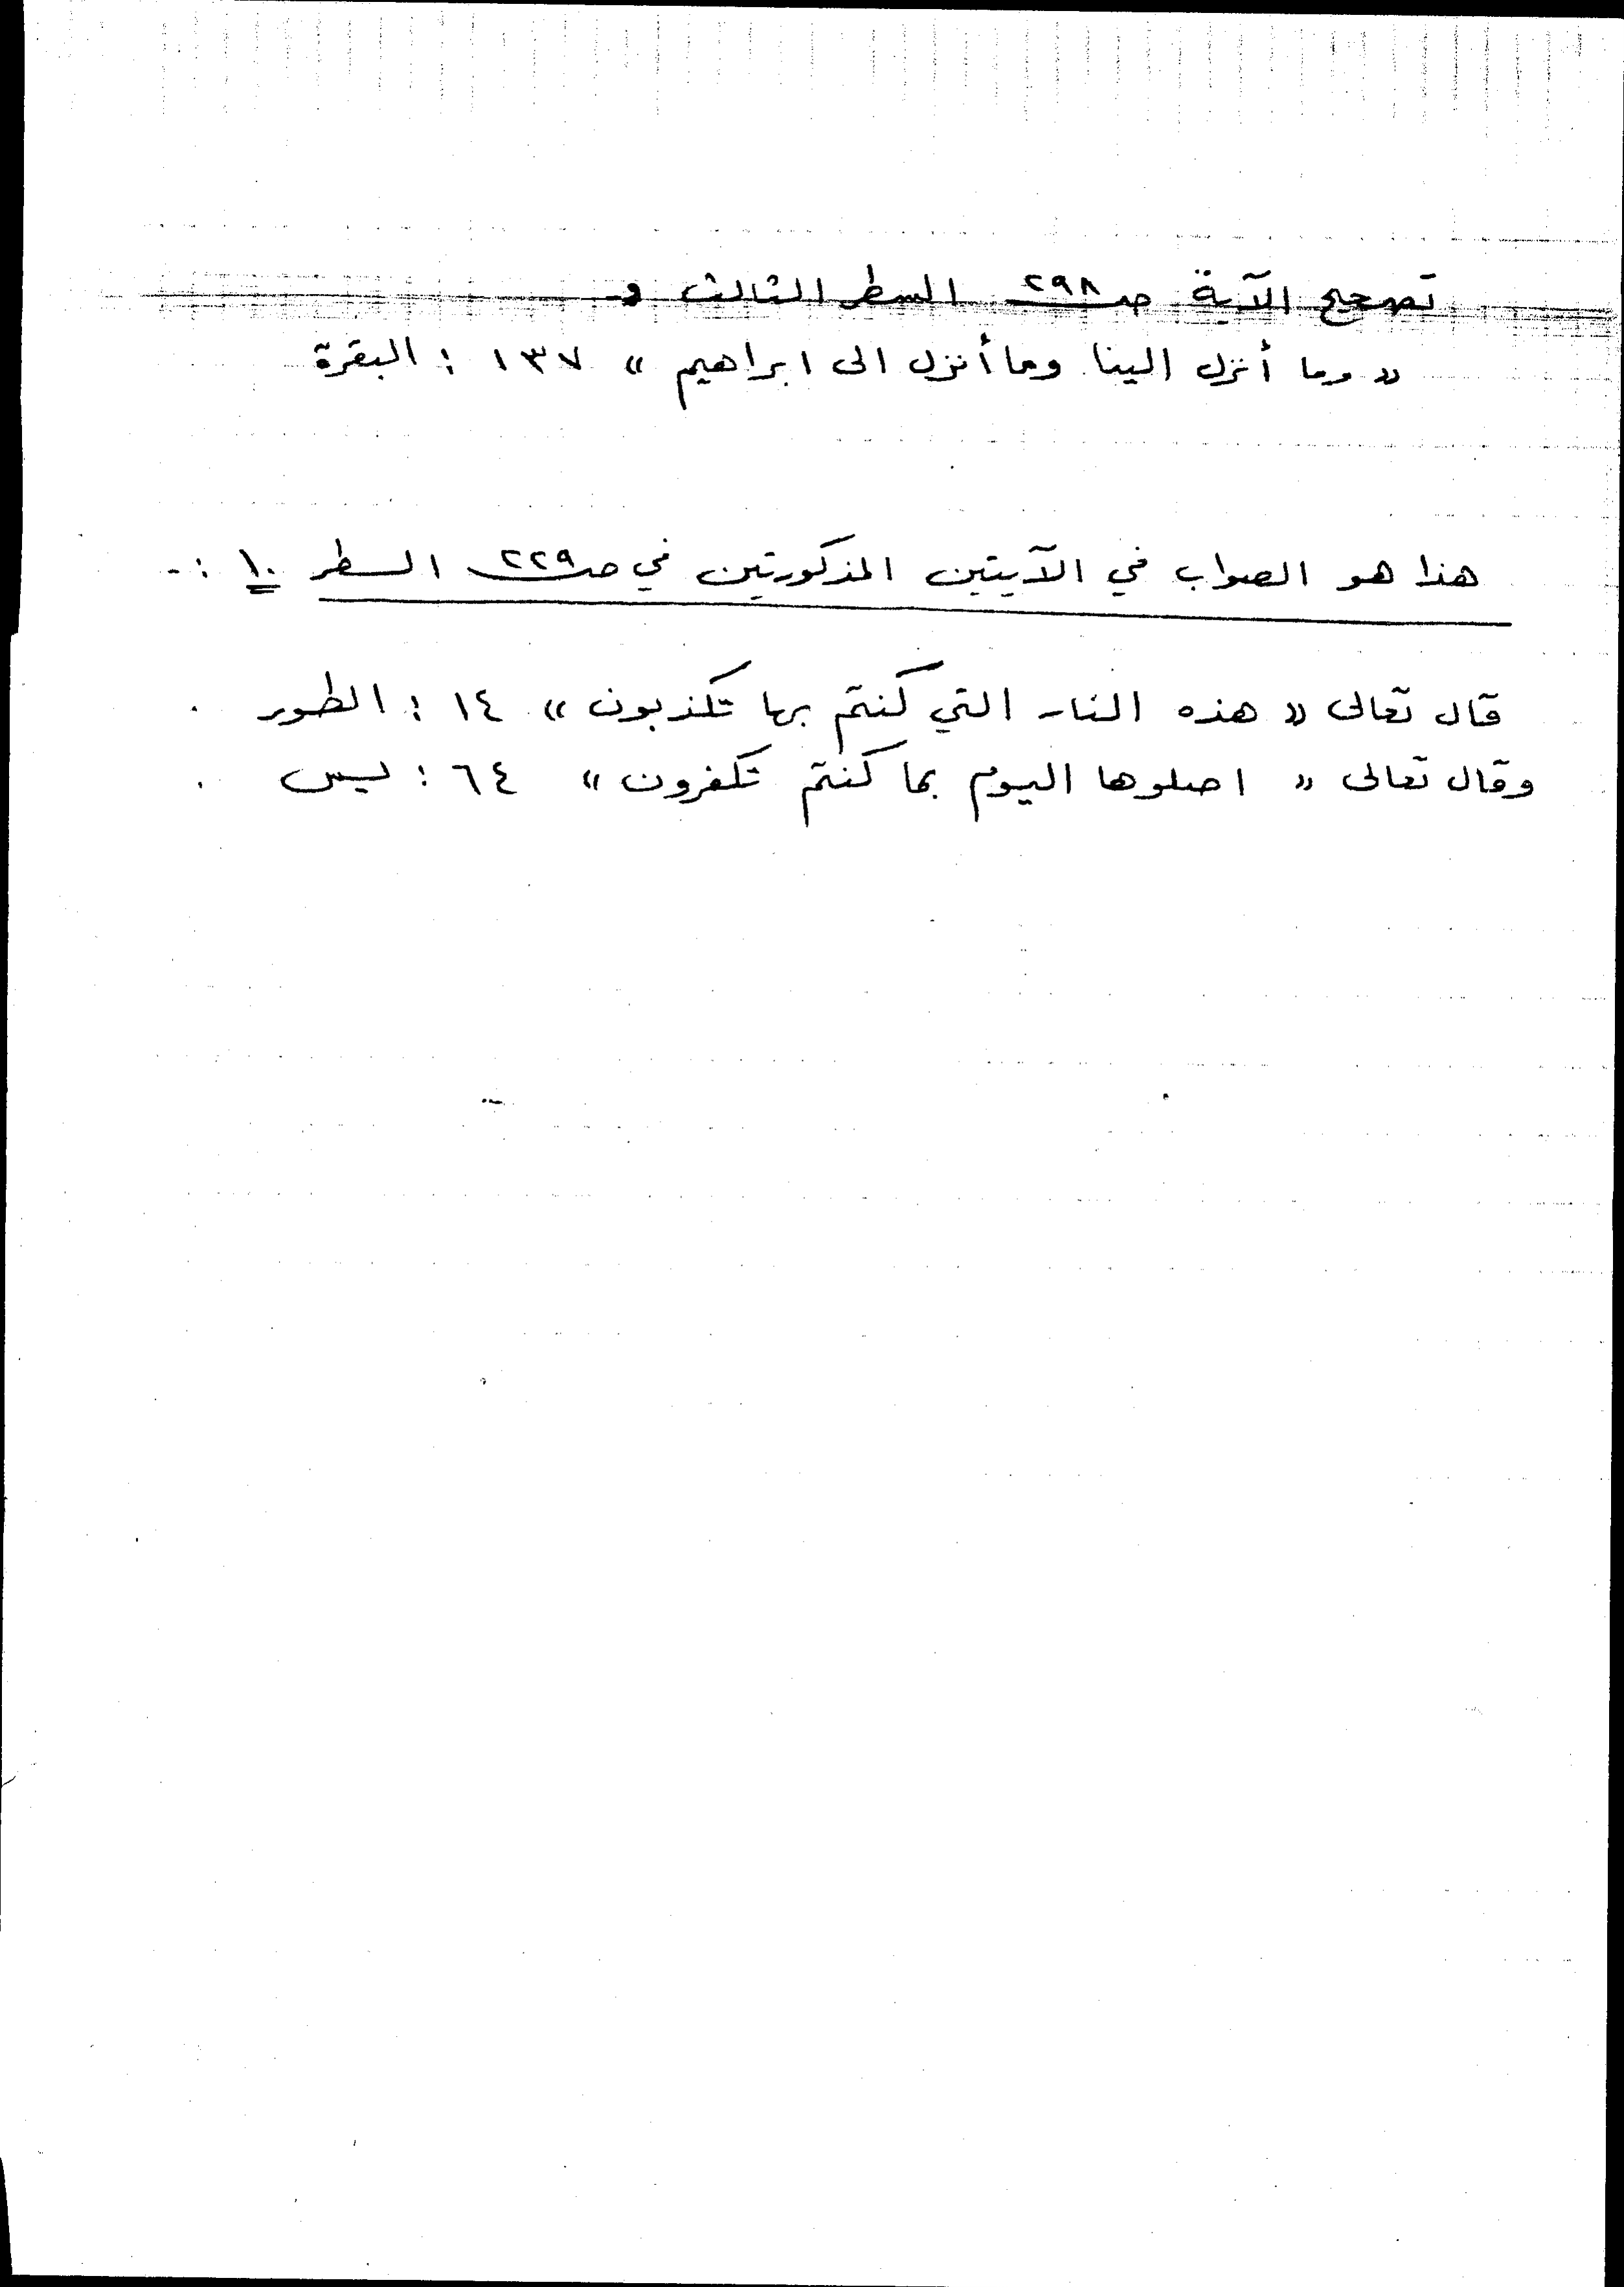 تصحيح الآية صـ ٢٩٨ السطر الثالث و
« وما أنزل الينا وما أنزل الى ابراهيم » ١٣٧ : البقرة
هذا هو الصواب في الآيتين المذكورتين في صـ ٢٢٩ السطر ١٠ :-
قال تعالى « هذه النار التي كنتم بها تكذبون » ١٤ : الطور .
وقال تعالى « اصلوها اليوم بما كنتم تكفرون » ٦٤ : يس .